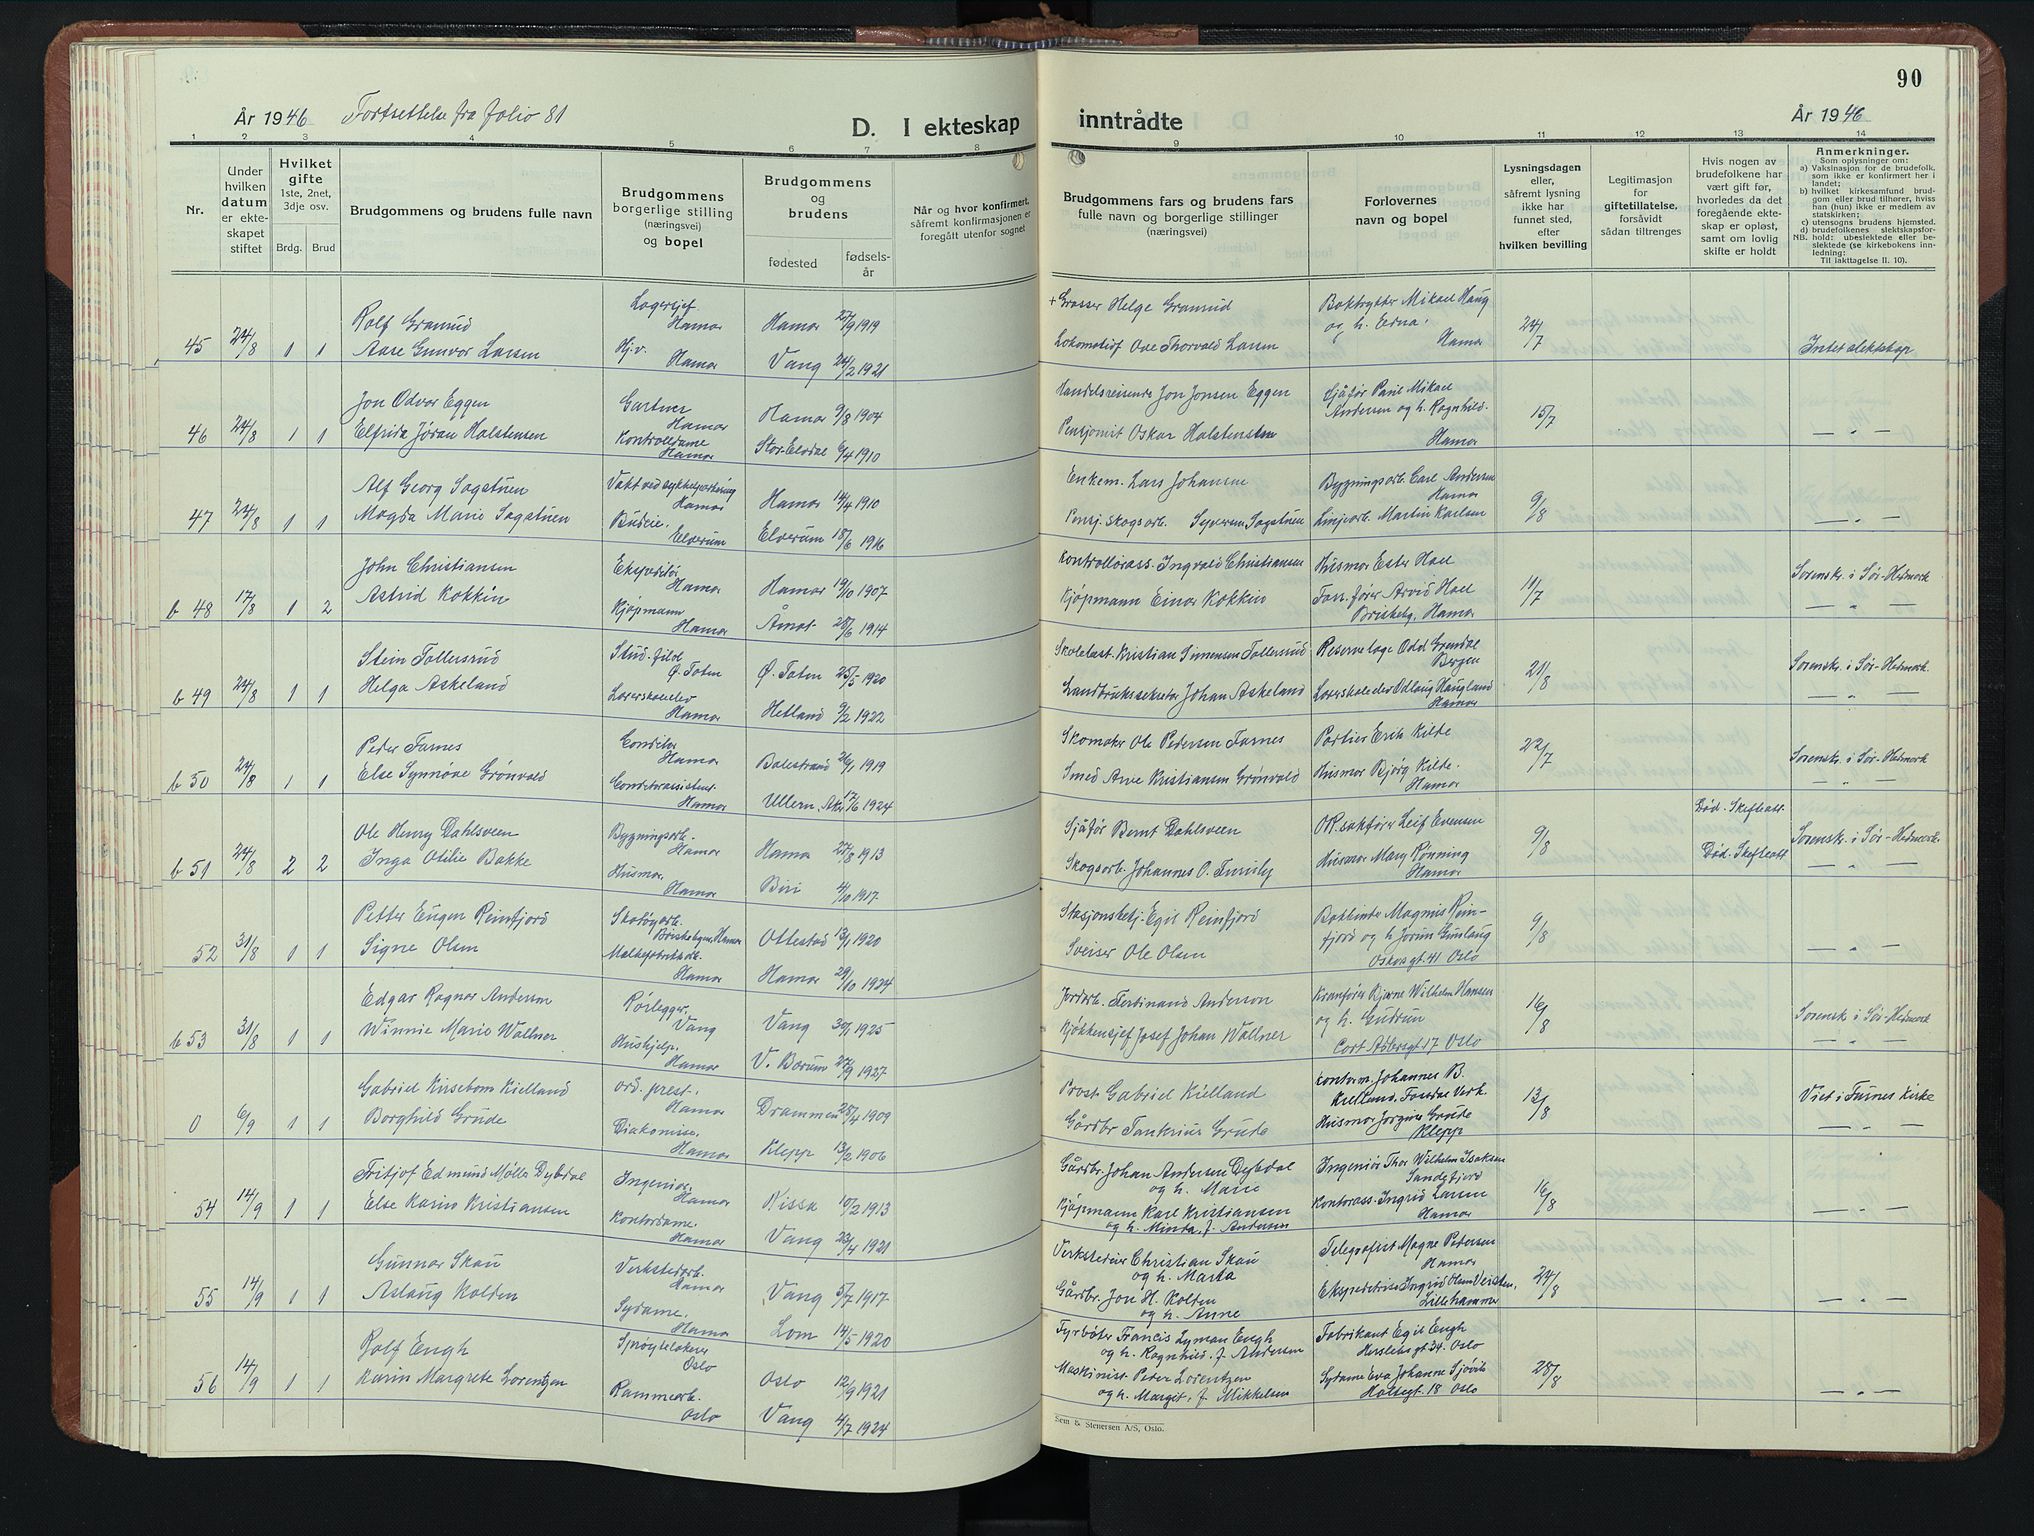 År 1946 Fortsettelse fra folio 81
D. I ekteskap
inntrådte
År 1946
90
1 2 3 4 5 6 7 8 9 10 11 12 13 14
Nr.
Under
hvilken
datum
er ekte-
skapet
stiftet
Hvilket
gifte
1ste, 2net,
3dje osv.
Brdg. Brud
Brudgommens og brudens fulle navn
Brudgommens
borgerlige stilling
(næringsvei)
og bopel
Brudgommens
og
brudens
fødested
fødsels-
år
Når og hvor konfirmert,
såfremt konfirmasjonen er
foregått utenfor sognet
Brudgommens fars og brudens fars
fulle navn og borgerlige stillinger
(næringsvei)
Forlovernes
navn og bopel
Lysningsdagen
eller,
såfremt lysning
ikke har
funnet sted,
efter
hvilken bevilling
Legitimasjon
for
giftetillatelse,
forsåvidt
sådan tiltrenges
Hvis nogen av
brudefolkene har
vært gift før,
hvorledes da det
foregående ekte-
skap er opløst,
samt om lovlig
skifte er holdt
Anmerkninger.
Som oplysninger om:
a) Vaksinasjon for de brudefolk,
som ikke er konfirmert her i
landet;
b) hvilket kirkesamfund brud-
gom eller brud tilhører, hviss
han (hun) ikke er medlem av
statskirken;
c) utensogns brudens hjemsted.
d) brudefolkenes slektskapsfor-
NB. hold: ubeslektede eller be-
slektede (se kirkebokens inn-
ledning:
Til iakttagelse II. 10).
45 24/8 1 1
Rolf Granrud
Aase Gunvor Larsen
Lagersjef
Hamar
Hj.v.
Hamar
Hamar 27/9 1919
Vang 24/2 1921
+ Grosser Helge Granrud
Lokomotivf Ove Thorvald Larsen
Boktrykker Mikael Haug
og h. Edna.
Hamar
24/7
Intet slektskap
46 24/8 1 1
Jon Odvar Eggen
Elfrida Jøran Halstensen
Gartner
Hamar
Kontrolldame
Hamar
Hamar 9/8 1904
Stor-Elvdal 6/4 1910
Handelsreisende Jon Jonsen Eggen
Pensjonist Oskar Halstensen
Sjåfør Paul Mikael
Andersen og h. Ragnhild.
Hamar
15/7
— " —
47 24/8 1 1
Alf Georg Sagstuen
Magda Marie Sagstuen
Vakt ved sykkelparkering
Hamar
Budeie.
Elverum
Hamar 14/4 1910
Elverum 18/6 1916
Enkem. Lars Johansen
Pensj. skogsarb. Syversen Sagstuen
Bygningsarb. Carl Andersen
Hamar
Linjearb. Martin Karlsen
9/8
— " —
b 48 17/8 1 2
John Christiansen
Astrid Kokkin
Ekspeditør
Hamar
Kjøpmann
Hamar
Hamar 19/10 1907
Åmot 28/6 1914
Kontrollørass. Ingvald Christiansen
Kjøpmann Einar Kokkin
Husmor Ester Hoel
Fan.fører Arvid Hoel
Briskeby, Hamar
11/7
Sorenskr. i Sør-Hedmark
— " —
b 49 24/8 1 1
Stein Tollersrud
Helga Askeland
Stud. fild
Ø. Toten
Lærerskoleelev
Hamar
Ø. Toten 25/5 1920
Hetland 9/2 1922
Skolebest. Kristian Simensen Tollersrud
Landbrukssekretær Johan Askeland
Reservelege Odd Grendal
Bergen
Lærerskoleelev Odlaug Haugland
Hamar
21/8
Sorenskr. i Sør-Hedmark
— " —
b 50 24/8 1 1
Peder Farnes
Else Synnøve Grønvold
Conditor
Hamar
Conditorassistent.
Hamar
Balestrand 26/1 1919
Ullern, Aker 17/6 1924
Skomaker Ole Pedersen Farnes
Smed Arne Kristiansen Grønvold
Portier Erik Kilde
Husmor Bjørg Kilde.
Hamar
22/7
Sorenskr. i Sør-Hedmark
— " —
b 51 24/8 2 2
Ole Henry Dahlsveen
Inga Otilie Bakke
Bygningsarb.
Hamar
Husmor.
Hamar
Hamar 27/8 1913
Biri 4/10 1917
Sjåfør Bernt Dahlsveen
Skogsarb. Johannes O.
OR.sakfører Leif Evensen
Husmor Mary Rønning
Hamar
9/8
Død. Skifteatt.
Død. Skifteatt
Sorenskr. i Sør-Hedmark.
— " —
52 31/8 1 1
Petter Eugen Reinfjord
Signe Olsen
Skotøyarb.
Briskebyen, Hamar
Melkefabrikkarb.
Hamar
Ottestad 13/1 1920
Hamar 29/10 1924
Stasjonsbetj. Egil Reinfjord
Sveiser Ole Olsen
Bokbinder Magnus Rein-
fjord og h. Jorun Gunlaug
Oskarsgt. 41 Oslo
9/8
— " —
b 53 31/8 1 1
Edgar Ragnar Anderson
Winnie Marie Wallner
Rørlegger.
Vang
Hushjelp.
Hamar
Vang 30/1 1925
V. Bærum 27/9 1927
Jordarb. Ferdinand Anderson
Kjøkkensjef Josef Johan Wallner
Kranfører Bjarne Wilhelm Hansen
og h. Gudrun
Cort Adelersgt 17 Oslo
16/8
Sorensk i Sør-Hedmark
— " —
0 6/9 1 1
Gabriel Kirsebom Kielland
Borghild Grude
ord. prest.
Hamar
Diakonisse.
Hamar
Drammen 28/4 1909
Klepp 13/2 1906
Prost Gabriel Kielland
Gårdbr Tankrius Grude
Kontorm. Johannes B.
Kielland, Fosdal Verk.
Husmor Jorgine Grude
Klepp
13/8
Viet i Furnes kirke
— " —
54 14/9 1 1
Fritjof Edmund Møller Dybdal
Else Karin Kristiansen
Ingeniør.
Hamar
Kontordame.
Hamar
Rissa 10/2 1913
Vang 23/4 1921
Gårdbr. Johan Andersen Dybdal
og h. Marie
Kjøpmann Karl Kristiansen
og h. Minda, f. Andersen
Ingeniør Thor Wilhelm Isaksen
Sandefjord
Kontorass. Ingrid Larsen
Hamar
16/8
— " —
55 14/9 1 1
Gunnar Skau
Aslaug Kolden
Verkstedarb.
Hamar
Sydame.
Hamar
Vang 5/7 1917
Lom 14/5 1920
Verkstedeier Christian Skau
og h. Marta
Gårdbr. Jon H. Kolden
og h. Anne
Telegrafist Magne Pedersen
Hamar
Ekspeditrise Ingrid Olsen Veisten,
Lillehammer
24/8
— " —
56 14/9 1 1
Rolf Engh
Karin Margrete Lorentzen
Sprøytelakerer
Oslo
Rammearb.
Oslo
Oslo 12/9 1921
Vang 4/7 1924
Fyrbøter Francis Lyman Engh
og h. Ragnhild. f. Andersen
Maskinist Peter Lorentzen
og h. Margit, f. Mikkelsen
Fabrikant Egil Engh
Herslebsgt 34. Oslo
Sydame Eva Johanne Sjøvik
Holtegt. 18 Oslo
28/8
— " —
Sem & Stenersen A/S, Oslo.